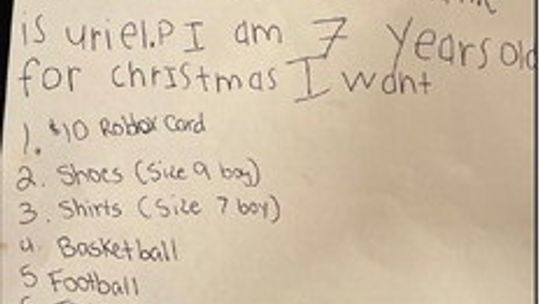 is uriel.P I am 7 years old
for christmas I want
1. $10 Roblox Card
2. Shoes (Size 9 boy)
3. Shirts (Size 7 boy)
4. Basketball
5 Football